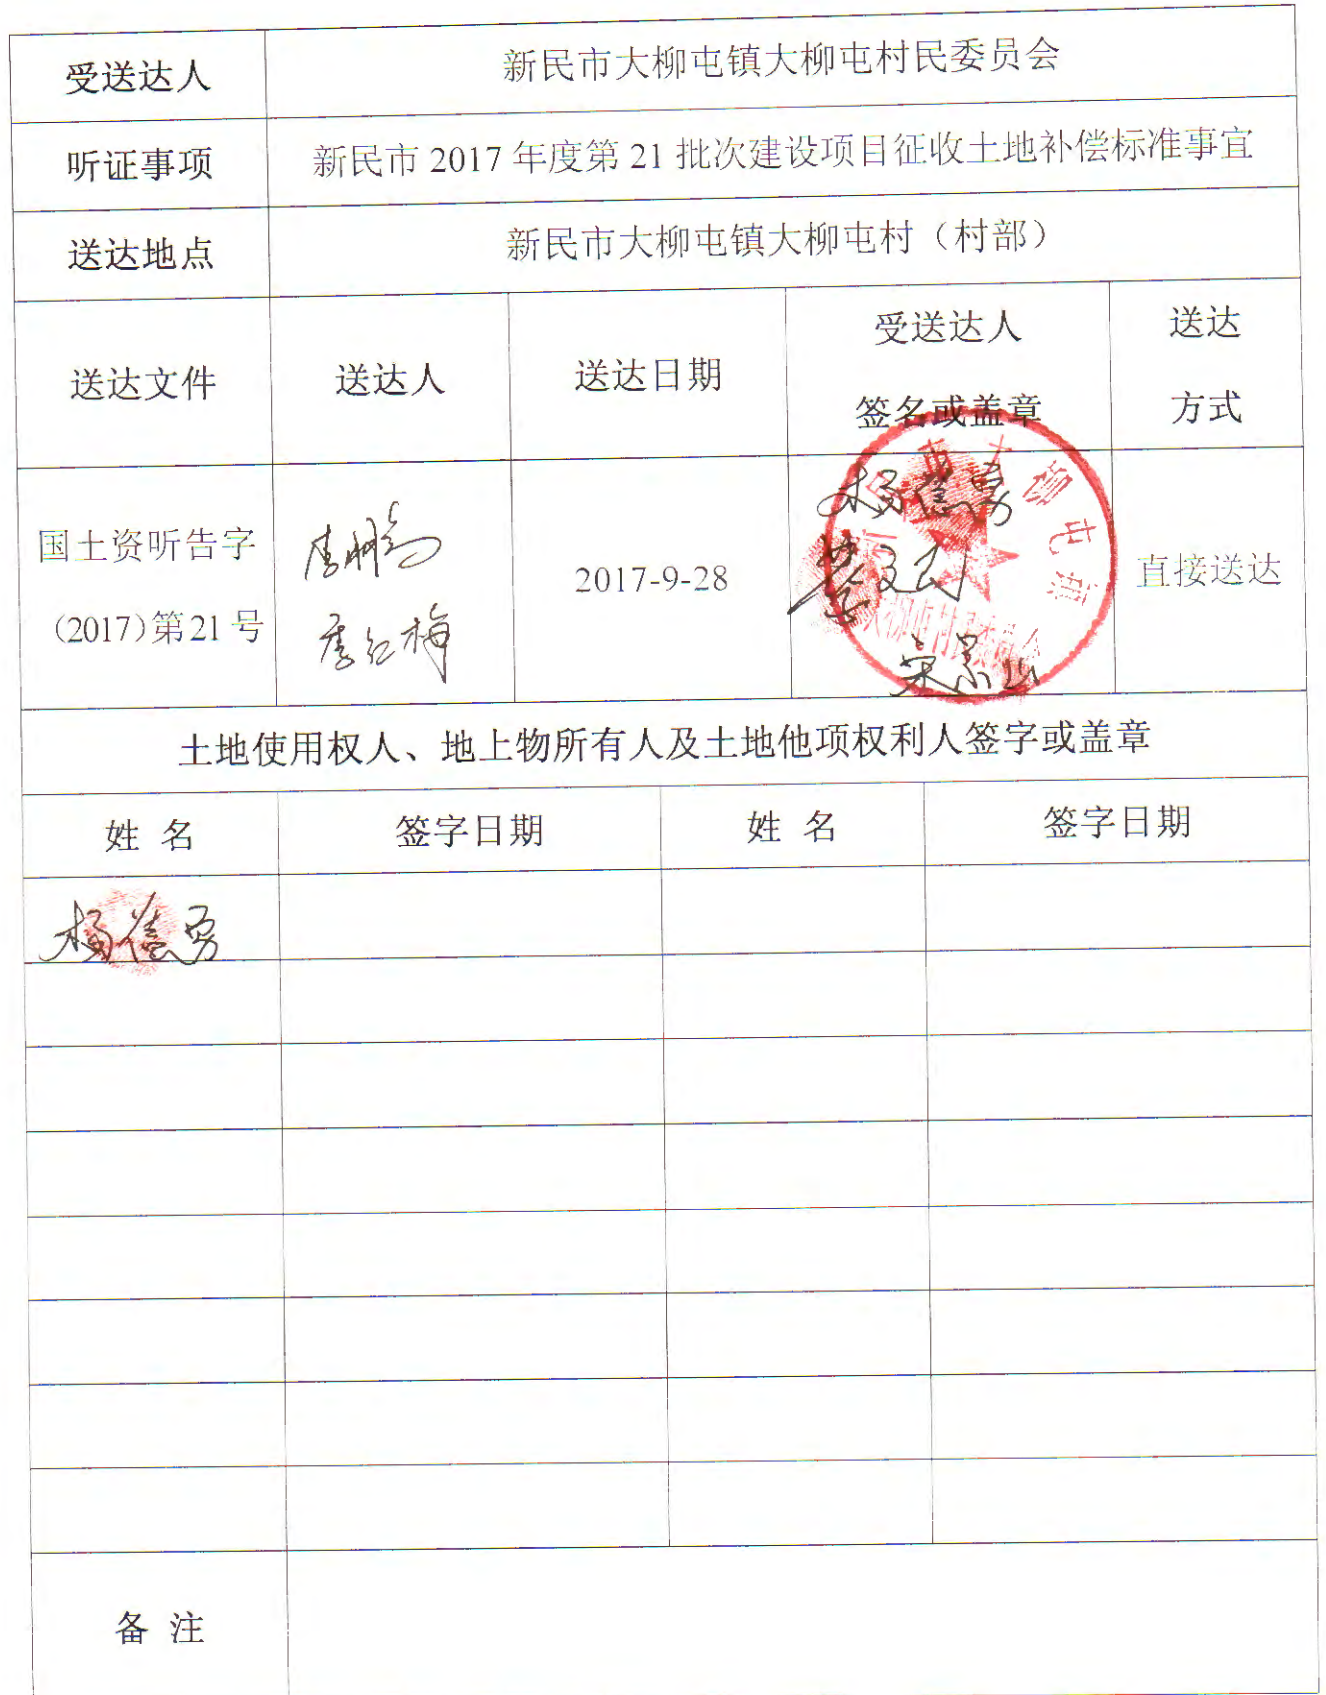 受送达人
新民市大柳屯镇大柳屯村民委员会
听证事项
新民市 2017 年度第 21 批次建设项目征收土地补偿标准事宜
送达地点
新民市大柳屯镇大柳屯村（村部）
送达文件
送达人
送达日期
受送达人
签名或盖章
送达
方式
国土资听告字
（2017）第 21 号
李红梅
2017-9-28
直接送达
大柳屯镇
大柳屯村民委员会
土地使用权人、地上物所有人及土地他项权利人签字或盖章
姓 名
签字日期
姓 名
签字日期
备 注